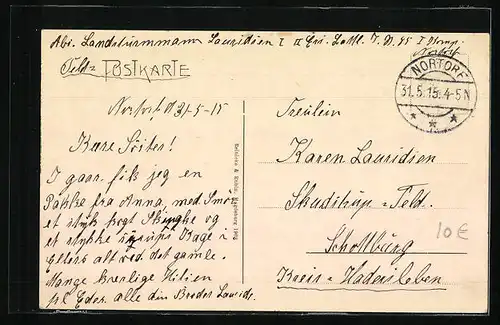 Abs. Landsturmmann Lauridsen I
Nortorf
Feld= POSTKARTE
NORTORF
31.5.15.4-5N
* * *
Nortorf d 31-5-15
Kære Söster!
I gaar fik jeg en
Pakke fra Anna, med Smör
et styk kogt Skinke og
et stykke sirups Kage
Ellers alt ved det gamle.
Mange kærlige Hilsen
til Eder alle din Broder Laurids.
Fräulein
Karen Lauridsen
Skudstrup=Feld.
Schottburg
Kreis=Hadersleben
10€